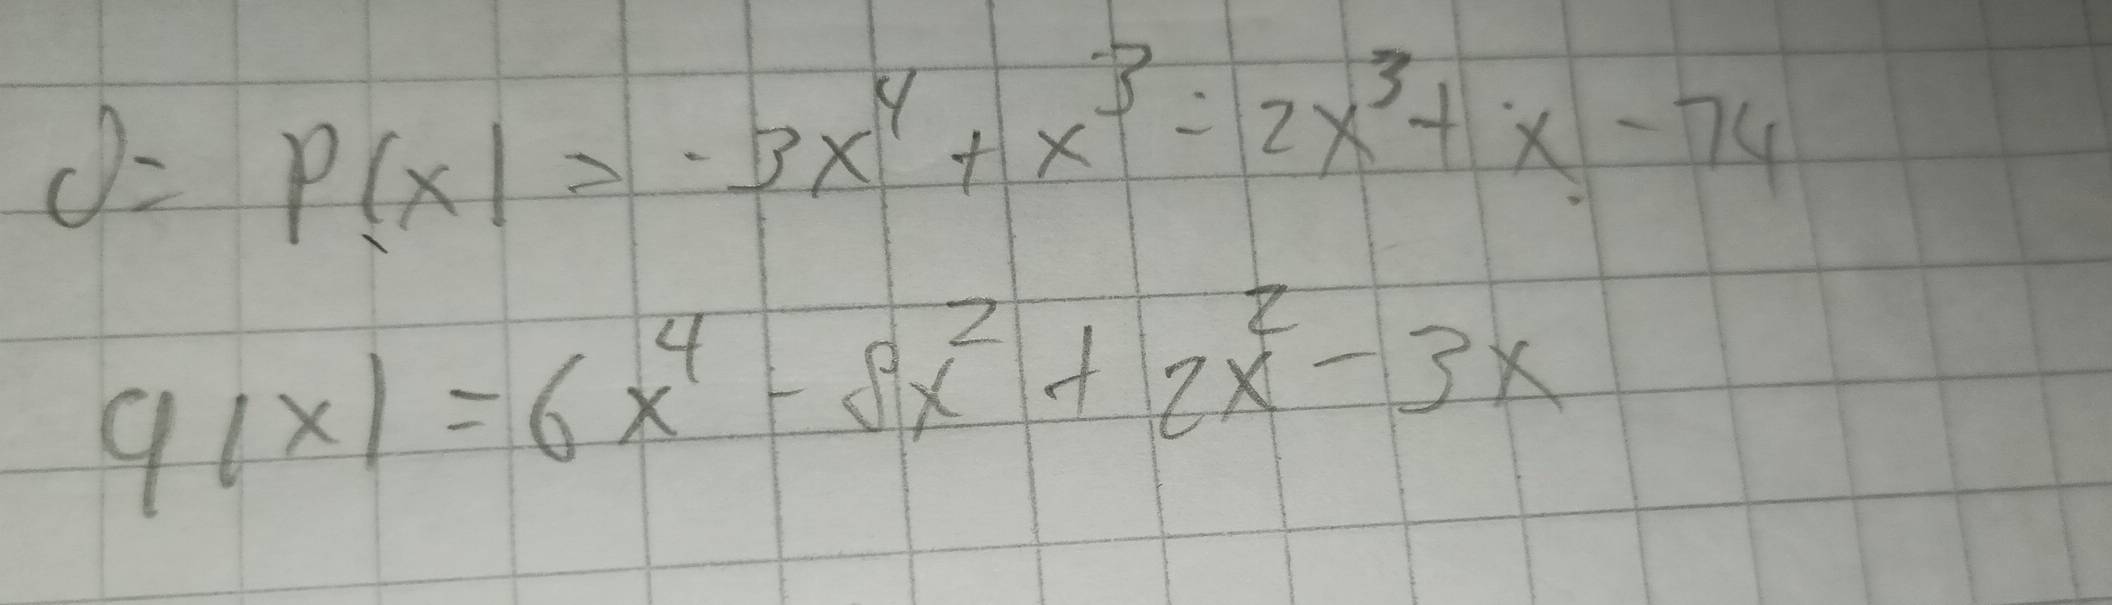 d= P(x) = -3x⁴ + x³ - 2x³ + x - 74
q(x) = 6x⁴ - 8x² + 2x² - 3x